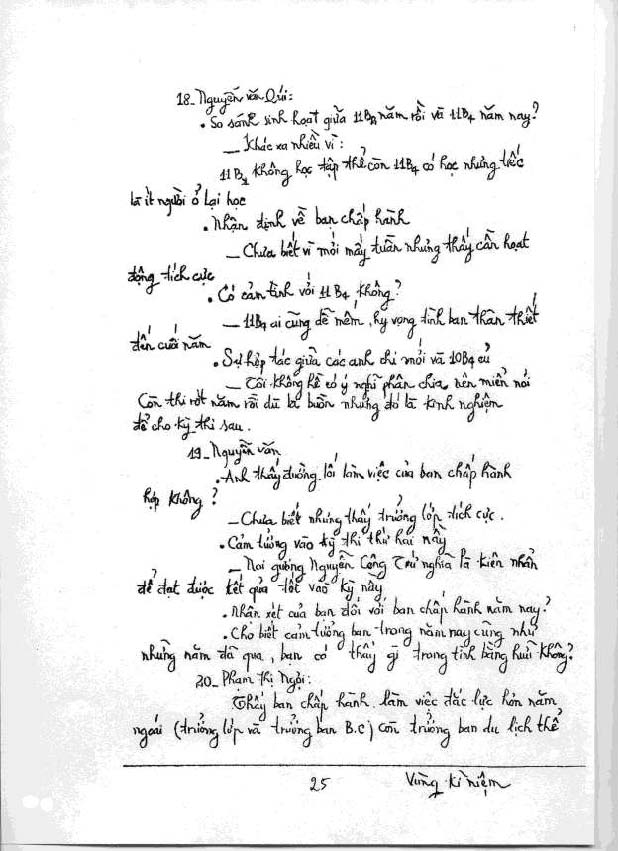 18_ Nguyễn Văn Qúi:
. So sánh sinh hoạt giữa 11B năm rồi và 11B4 năm nay?
_ Khác xa nhiều vì:
11B không học tập thể còn 11B4 có học nhưng tiếc
là ít người ở lại học
. Nhận định về ban chấp hành
_ Chưa biết vì mới mấy tuần nhưng thấy cần hoạt
động tích cực
. Có cảm tình với 11B4 không?
_ 11B4 ai cũng dễ mến, hy vọng tình bạn thân thiết
đến cuối năm
. Sự hợp tác giữa các anh chị mới và 10B4 cũ
_ Tôi không hề có ý nghĩ phân chia nên miễn nói
Còn thi rớt năm rồi dù là buồn nhưng đó là kinh nghiệm
để cho kỳ thi sau.
19_ Nguyễn văn
. Anh thấy đường lối làm việc của ban chấp hành
hợp không?
_ Chưa biết nhưng thấy trưởng lớp tích cực.
. Cảm tưởng vào kỳ thi thứ hai này
_ Noi gương Nguyễn Công Trứ nghĩa là kiên nhẫn
để đạt được kết quả tốt vào kỳ này
. Nhận xét của bạn đối với ban chấp hành năm nay?
. Cho biết cảm tưởng bạn trong năm nay cũng như
những năm đã qua, bạn có thấy gì trong tình bằng hữu không?
20_ Phạm Thị Ngòi:
Thấy ban chấp hành làm việc đắc lực hơn năm
ngoái (trưởng lớp và trưởng ban B.C) còn trưởng ban du lịch thể
25 Vùng kỉ niệm